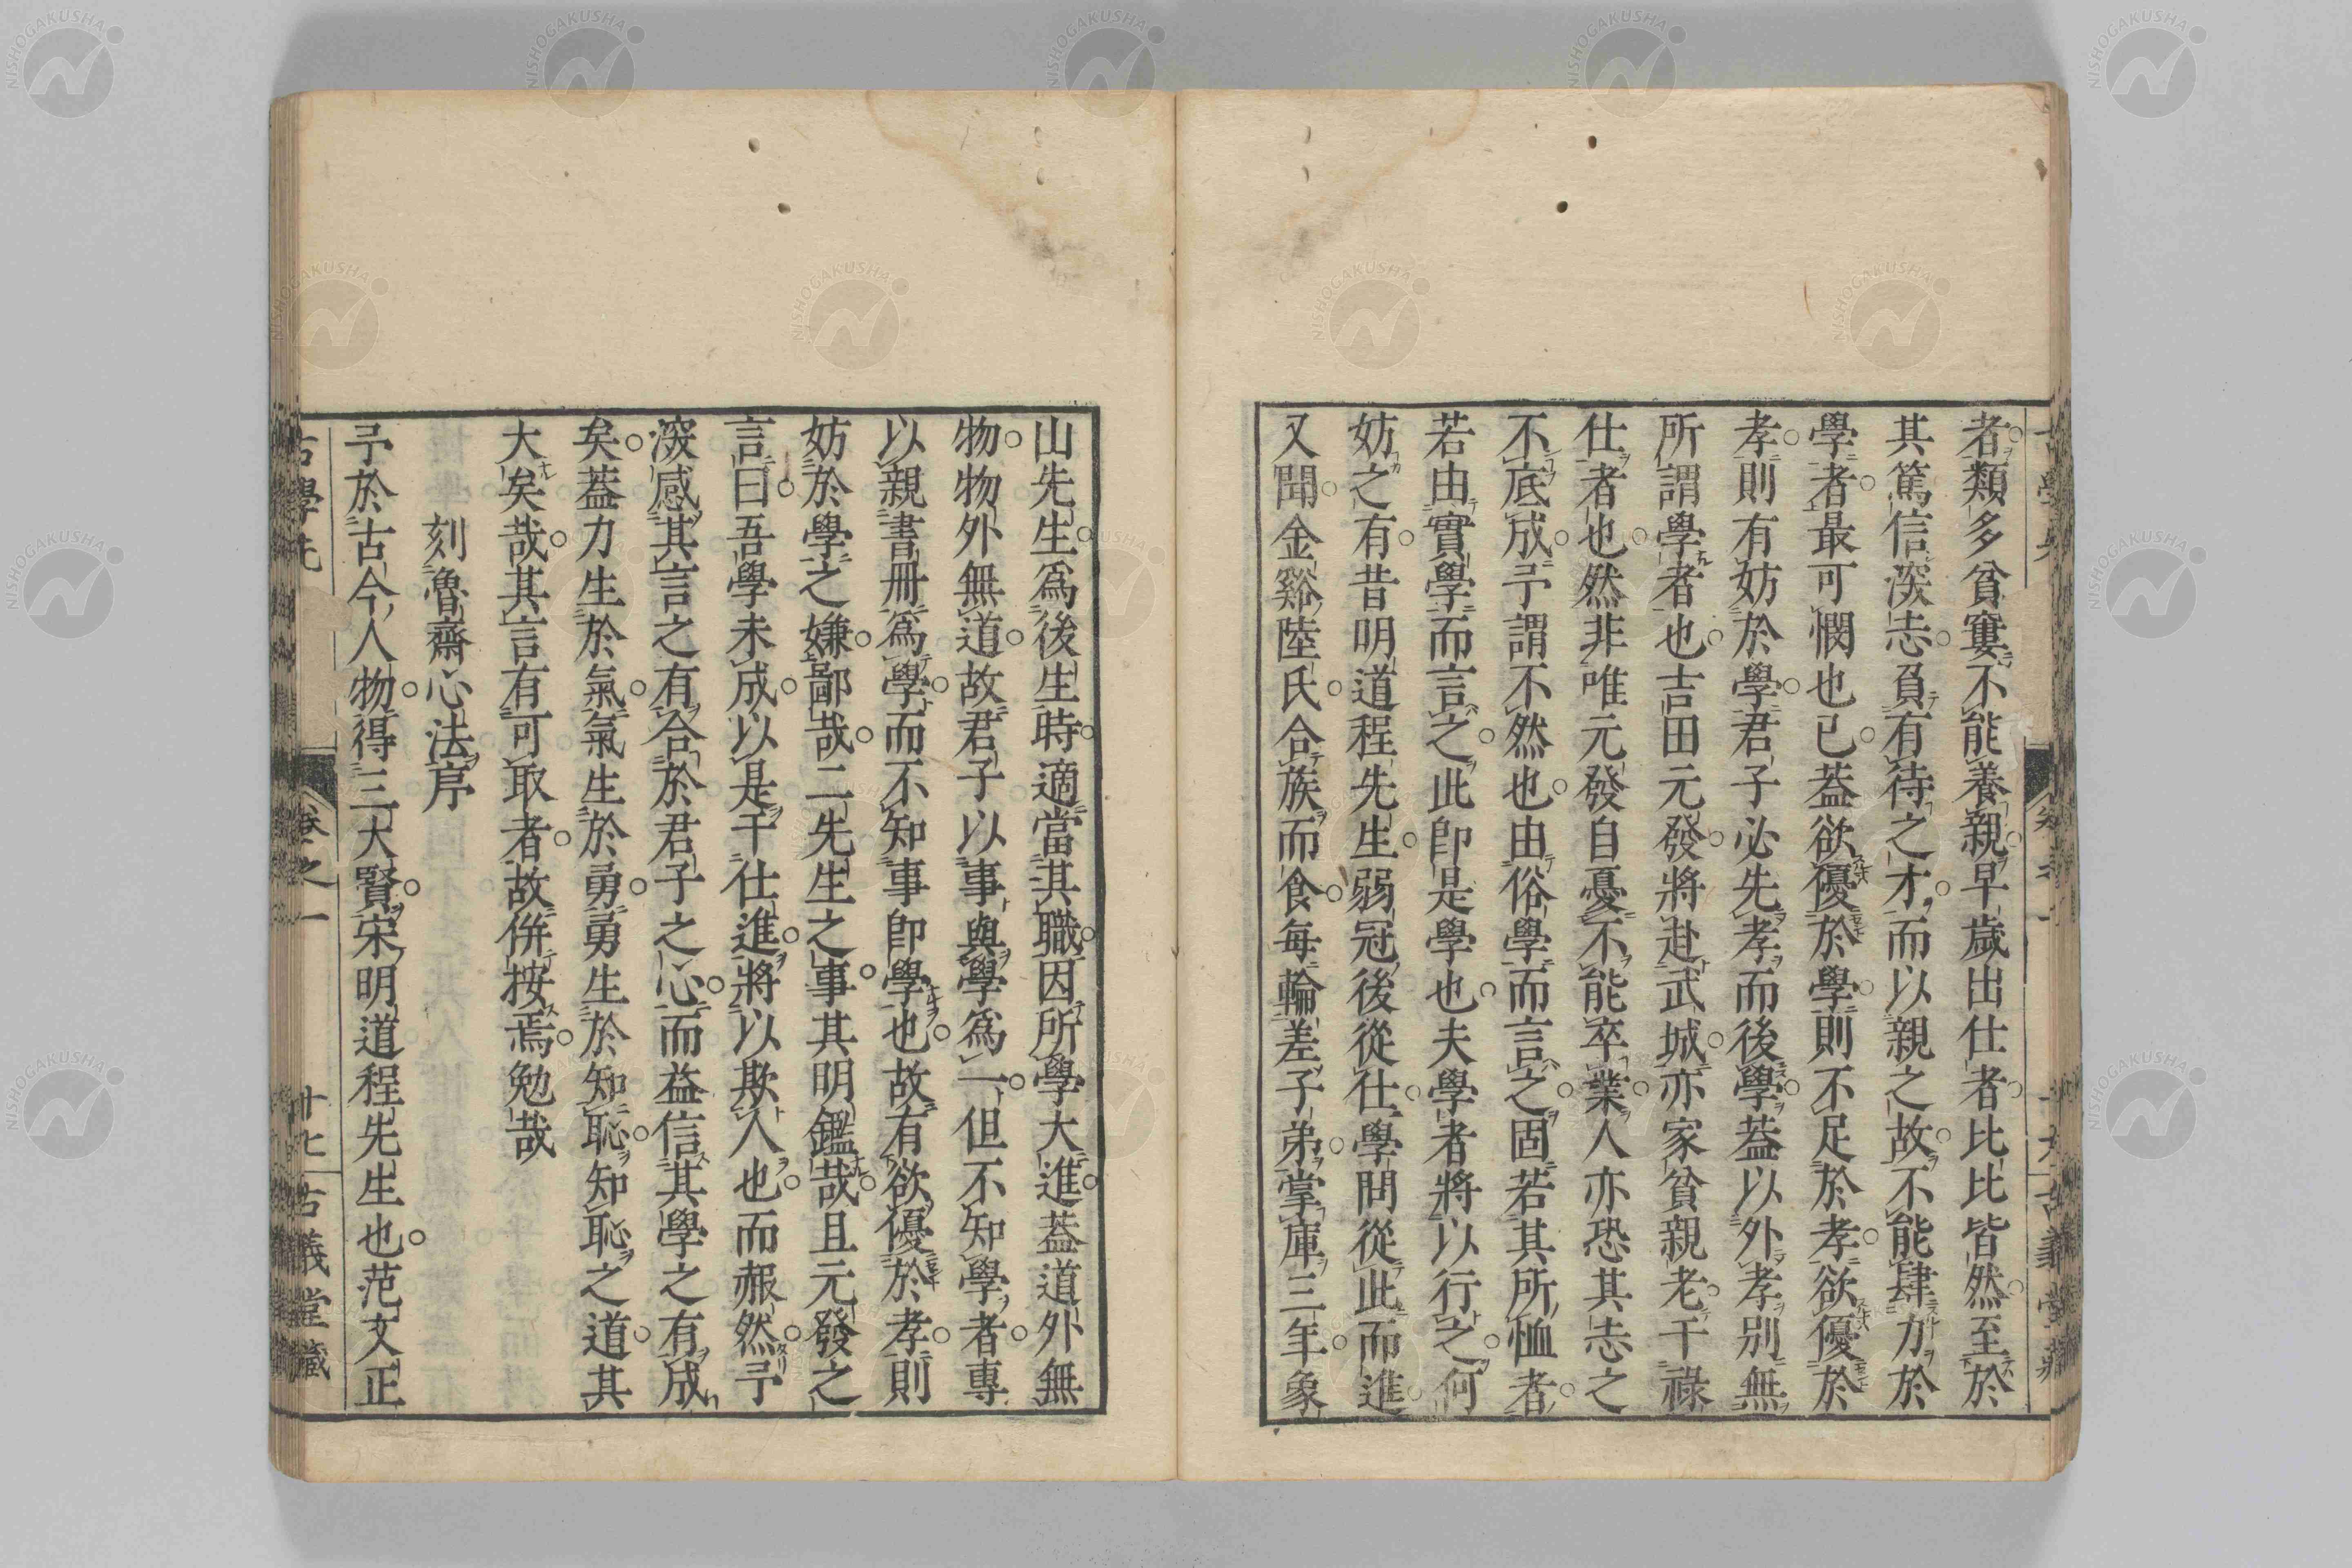 者類多貧窶不能養親早歲出仕者比比皆然至於
其篤信深志負有待之才而以親之故不能肆力於
學者最可憫也已蓋欲優於學則不足於孝欲優於
孝則有妨於學君子必先孝而後學蓋以外孝別無
所謂學者也吉田元發將赴武城亦家貧親老干祿
仕者也然非唯元發自憂不能卒業人亦恐其志之
不底成予謂不然也由俗學而言之固若其所恤者
若由實學而言之此卽是學也夫學者將以行之何
妨之有昔明道程先生弱冠後從仕學問從此而進
又聞金谿陸氏合族而食每輪差子弟掌庫三年象
山先生爲後生時適當其職因所學大進蓋道外無
物物外無道故君子以事與學爲一但不知學者專
以親書冊爲學而不知事卽學也故有欲優於孝則
妨於學之嫌鄙哉二先生之事其明鑑哉且元發之
言曰吾學未成以是干仕進將以欺人也而赧然予
深感其言之有合於君子之心而益信其學之有成
矣蓋力生於氣氣生於勇勇生於知恥知恥之道其
大矣哉其言有可取者故倂按焉勉哉
刻魯齋心法序
予於古今人物得三大賢宋明道程先生也范文正
卷之一
十七
古義堂藏
NISHOGAKUSHA